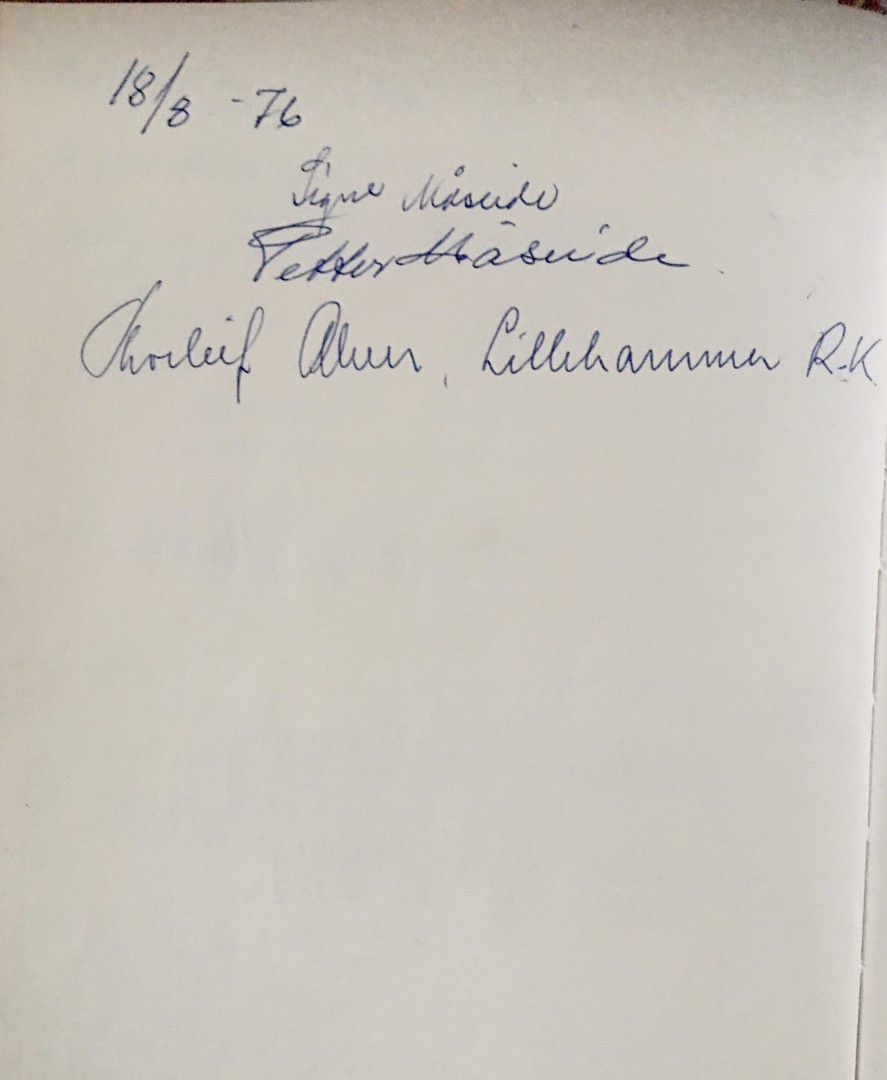 18/8 -76
Signe Måseide
Petter Måseide
Thorleif , Lillehammer R-K